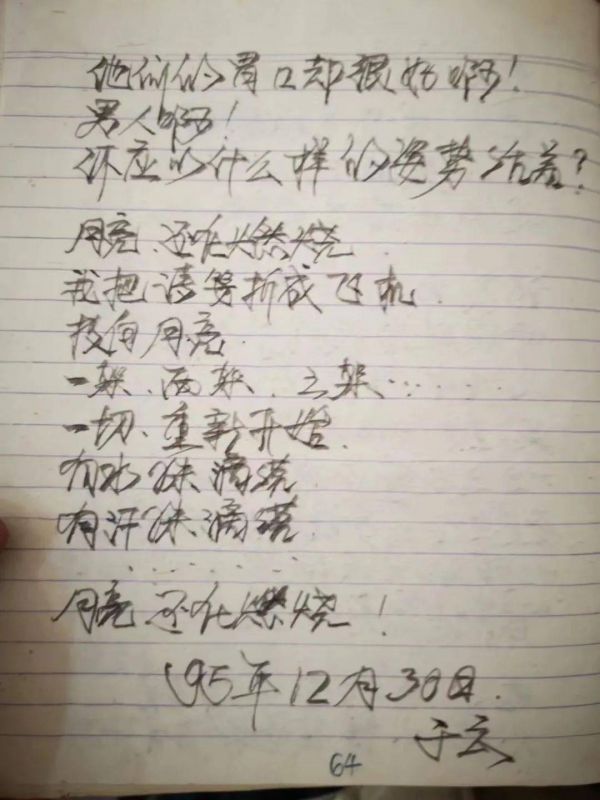 他们的胃口却很好啊！
男人啊！
你应以什么样的姿势站着？
月亮、还在燃烧
我把诗笺折成飞机
投向月亮
一架、两架、三架……
一切、重新开始
有水珠滴落
有汗珠滴落
…………
月亮还在燃烧！
95年12月30日.
于云
64